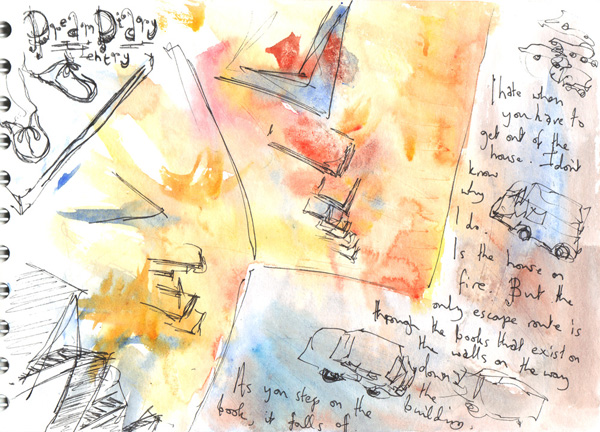 Dream Diary
entry
I hate when
you have to
get out of the
house. I don't
know
why
I do.
Is the house on
fire. But the
only escape route is
through the books that exist on
the walls on the way
down
the
building.
As you step on the
book, it falls of